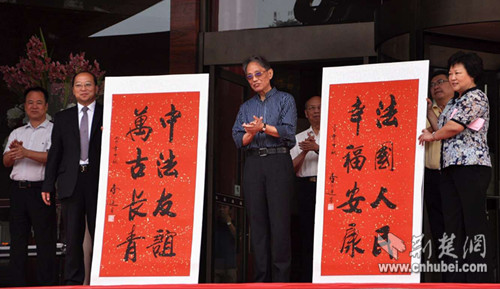 中法友誼
萬古長青
法國人民
幸福安康
荆楚网
www.cnhubei.com